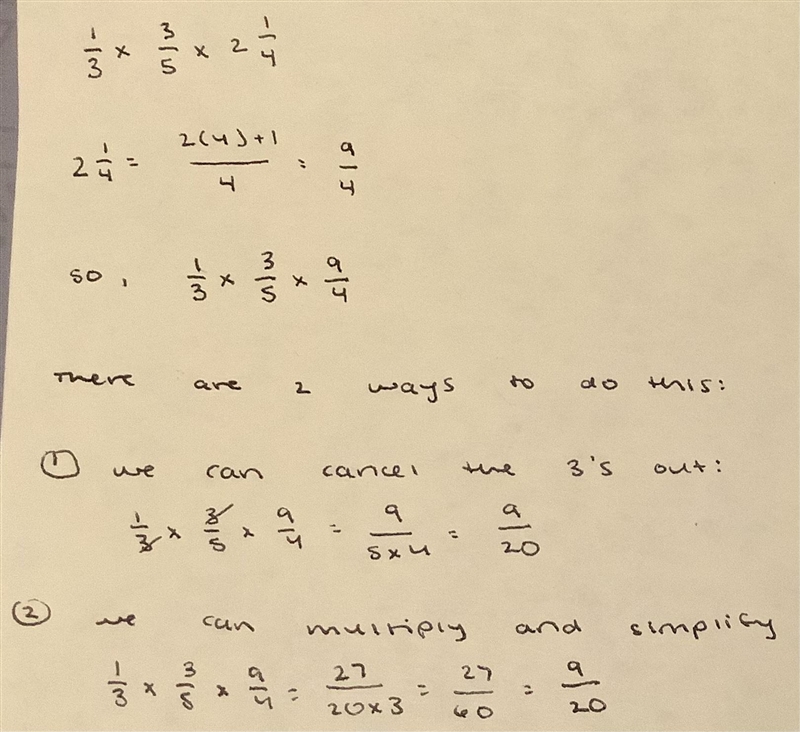 1/3 × 3/5 × 2 1/4
2 1/4 = (2(4)+1)/4 = 9/4
so, 1/3 × 3/5 × 9/4
There are 2 ways to do this:
① we can cancel the 3's out:
1/3 × 3/5 × 9/4 = 9/(5×4) = 9/20
② we can multiply and simplify
1/3 × 3/5 × 9/4 = 27/(20×3) = 27/60 = 9/20